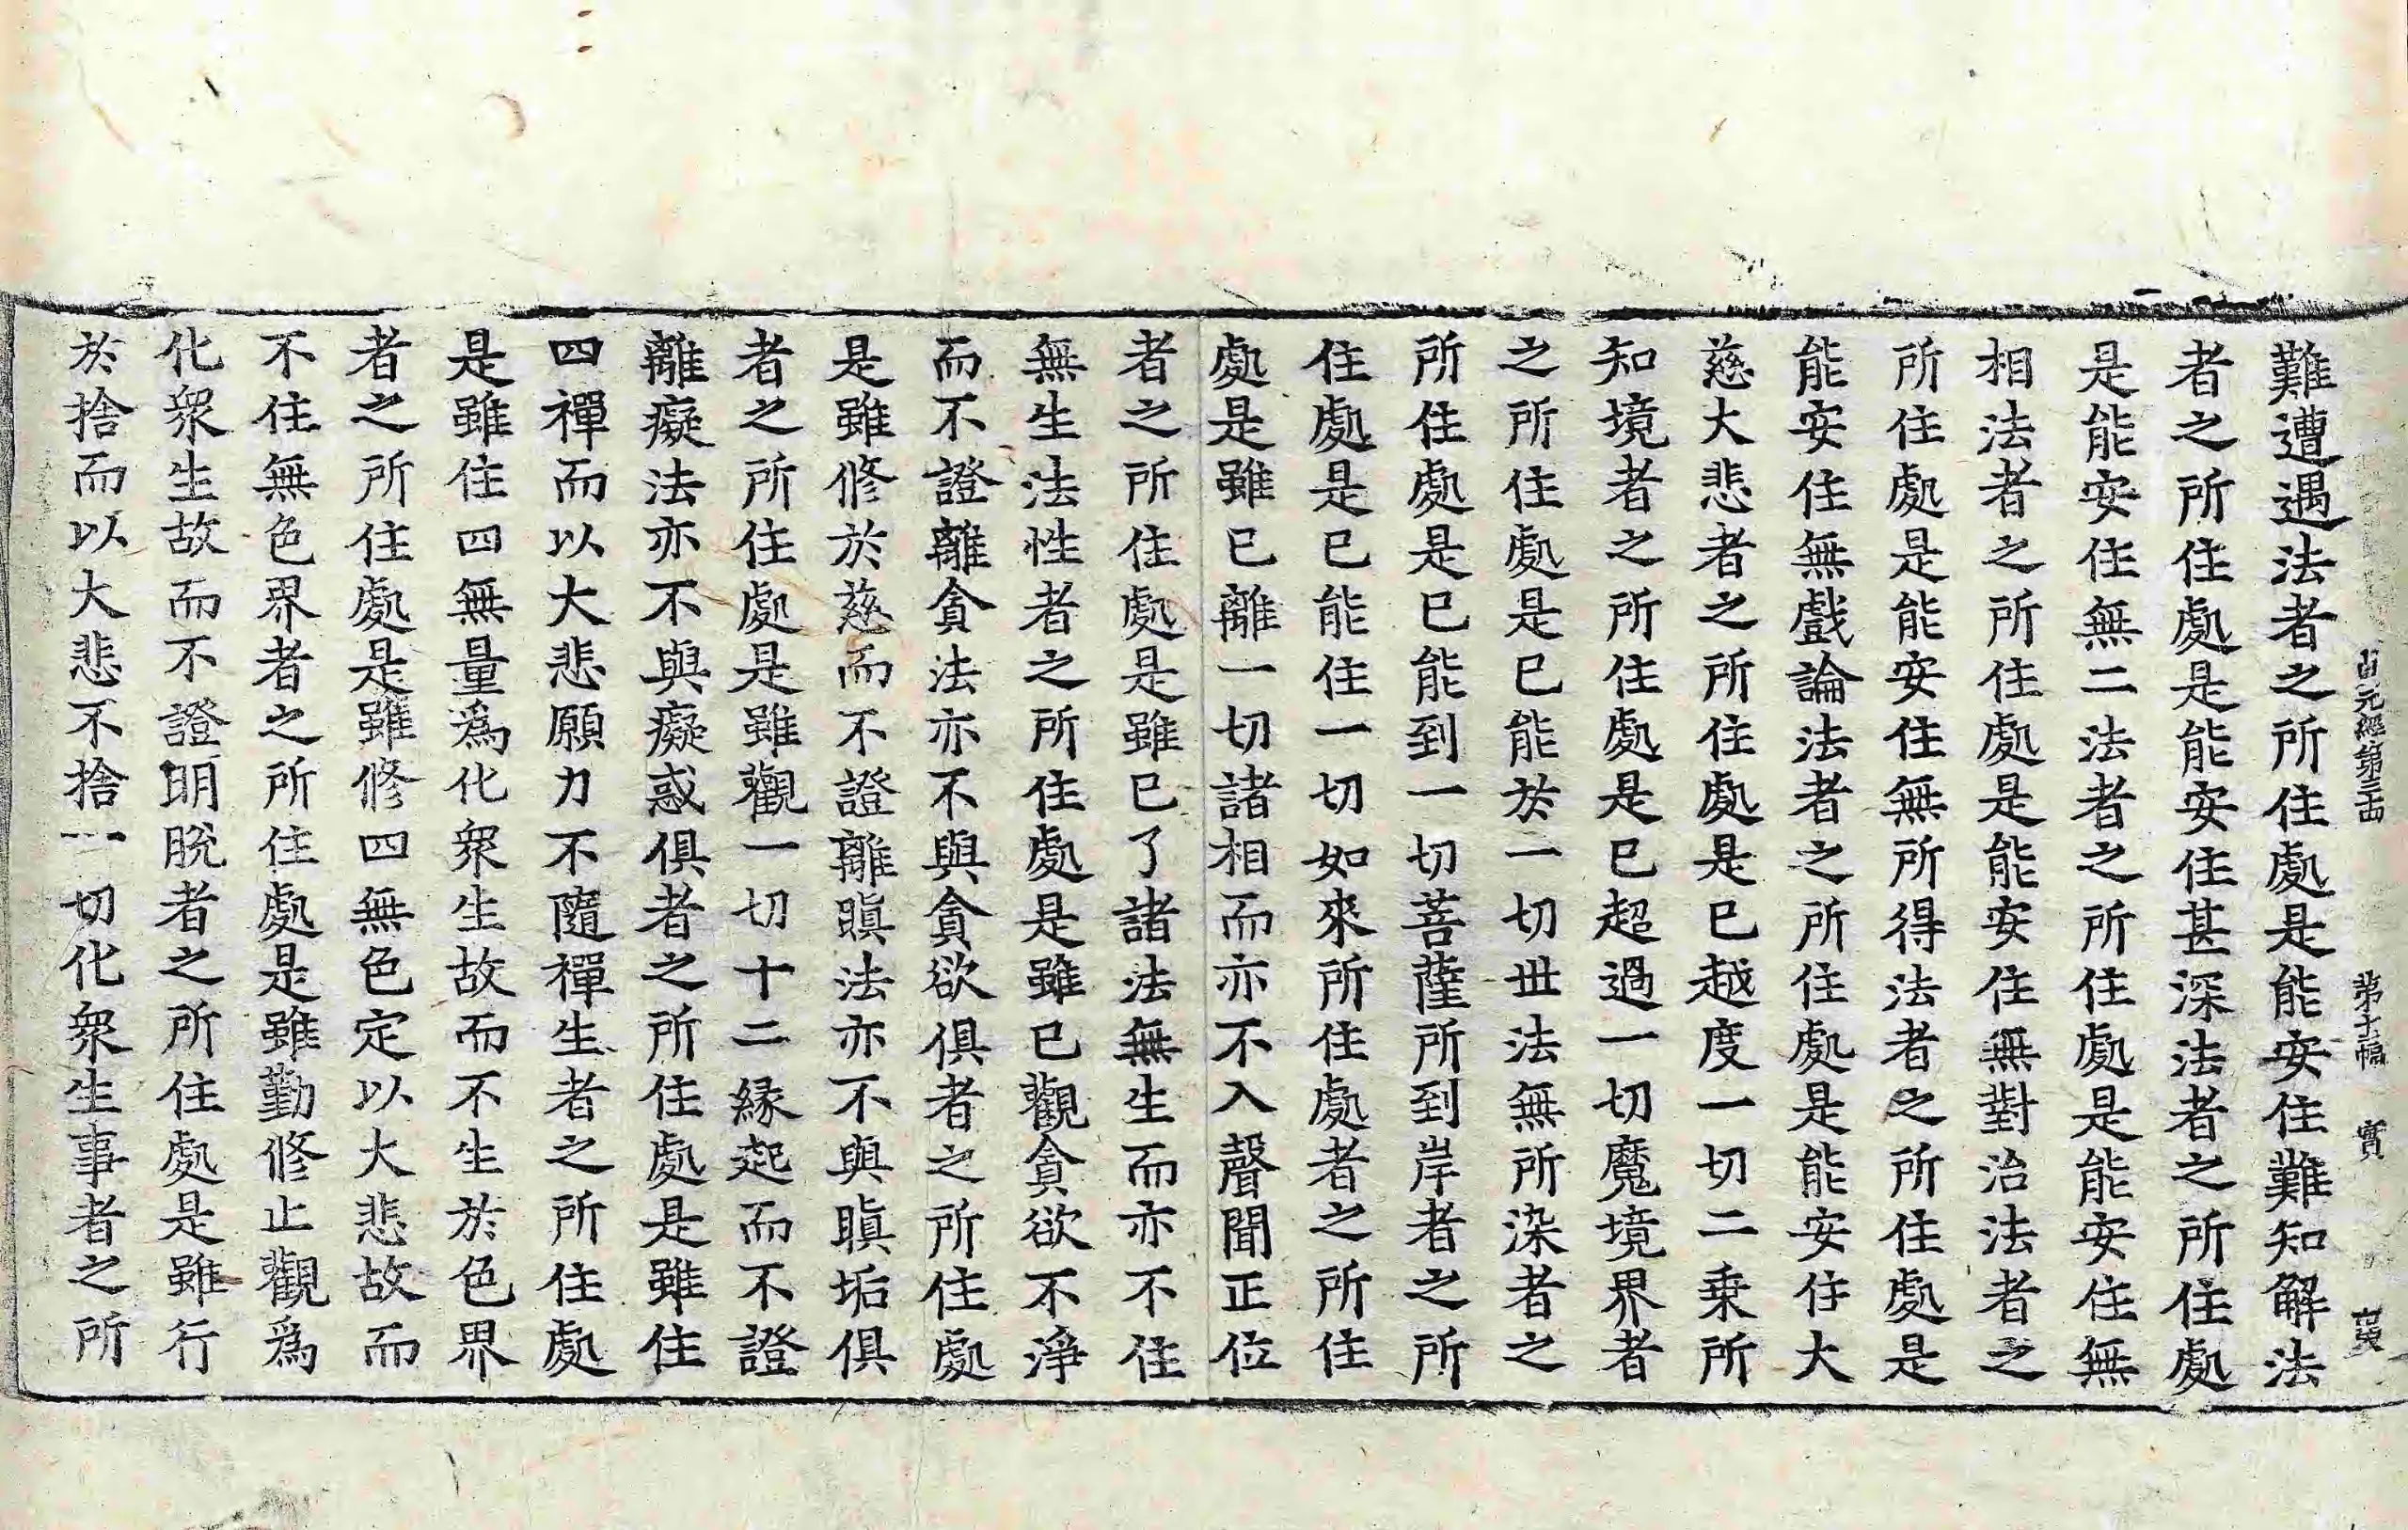 貞元經第三十四 第十三幅 實
難遭遇法者之所住處是能安住難知解法
者之所住處是能安住甚深法者之所住處
是能安住無二法者之所住處是能安住無
相法者之所住處是能安住無對治法者之
所住處是能安住無所得法者之所住處是
能安住無戲論法者之所住處是能安住大
慈大悲者之所住處是已越度一切二乗所
知境者之所住處是已超過一切魔境界者
之所住處是已能於一切世法無所染者之
所住處是已能到一切菩薩所到岸者之所
住處是已能住一切如來所住處者之所住
處是雖已離一切諸相而亦不入聲聞正位
者之所住處是雖已了諸法無生而亦不住
無生法性者之所住處是雖已觀貪欲不淨
而不證離貪法亦不與貪欲俱者之所住處
是雖修於慈而不證離瞋法亦不與瞋垢俱
者之所住處是雖觀一切十二緣起而不證
離癡法亦不與癡惑俱者之所住處是雖住
四禪而以大悲願力不隨禪生者之所住處
是雖住四無量爲化衆生故而不生於色界
者之所住處是雖修四無色定以大悲故而
不住無色界者之所住處是雖勤修止觀爲
化衆生故而不證明脫者之所住處是雖行
於捨而以大悲不捨一切化衆生事者之所